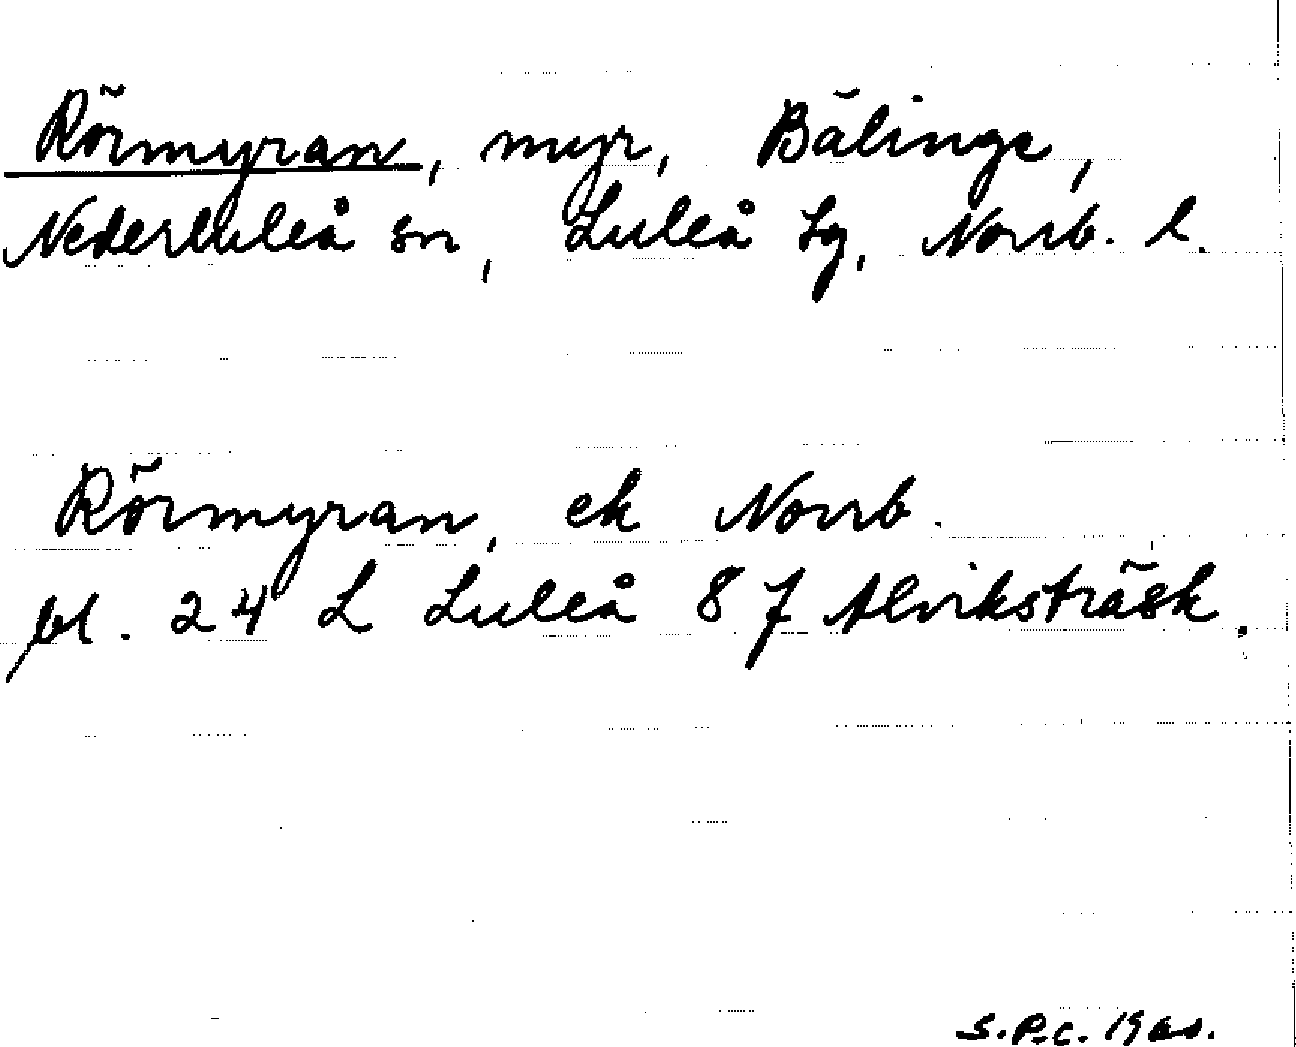 Rörmyran, myr, Bälinge,
Nederluleå sn, Luleå tg, Norrb. l.
Rörmyran, ek Norrb.
bl. 24 L Luleå 8 J Alviksträsk.
S.P.C.